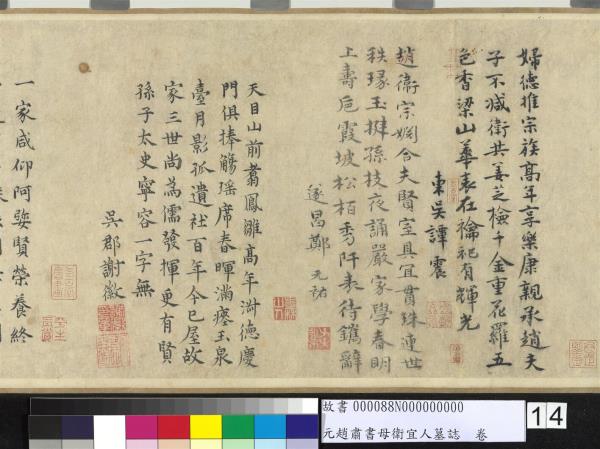 婦德推宗族高年享樂康親承趙夫
子不減衛共姜芝檢千金重花羅五
色香梁山華表在禴祀有輝光
東吳譚震
趙衛宗姻合夫賢室具宜貫珠連世
秩瑑玉挺孫枝夜誦嚴家學春明
上壽卮霞坡松栢秀阡表待鐫辭
遂昌鄭元祐
天目山前翥鳳雛高年澍德慶
門俱捧觴瑤席春暉滿瘞玉泉
臺月影孤遺社百年今已屋故
家三世尚為儒發揮更有賢
孫子太史寧容一字無
吳郡謝徽
一家咸仰阿㜈賢榮養終
故書 000088N000000000
元趙肅書母衛宜人墓誌 卷
14